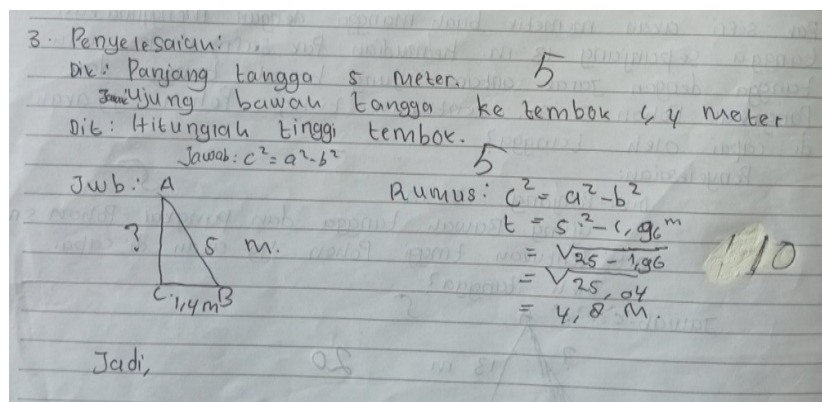 3. Penyelesaian:
Dik: Panjang tangga 5 meter. 5
Ujung bawah tangga ke tembok 1,4 meter
Dit: Hitunglah tinggi tembok.
Jawab: c² = a² - b² 5
Jwb: A
? 5 m.
C 1,4 m B
Rumus: c² = a² - b²
t = 5² - 1,96 m
= √25 - 1,96
= √25,04
= 4,8 m.
10
Jadi,